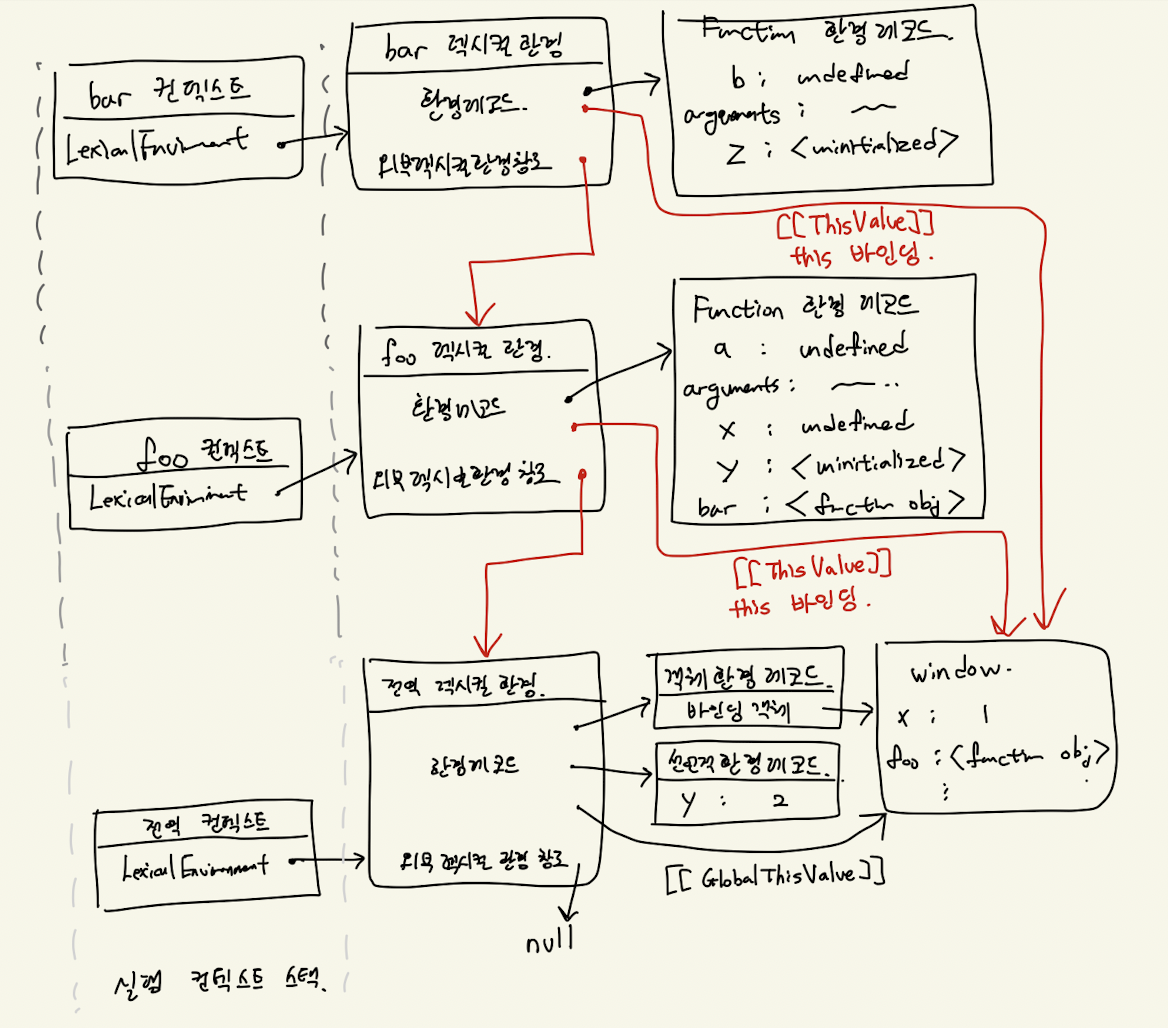 bar 렉시컬 환경
bar 컨텍스트
LexicalEnviment
환경레코드.
외부렉시컬환경참조
Function 환경 레코드.
b : undefined
arguments : ~
z : <uninitialized>
[[ThisValue]]
this 바인딩.
foo 렉시컬 환경.
환경레코드
외부 렉시컬환경 참조
foo 컨텍스트
LexicalEnviniment
Function 환경 레코드
a : undefined
arguments : ~ ..
x : undefined
y : <uninitialized>
bar : <functin obj>
[[ThisValue]]
this 바인딩.
전역 렉시컬 환경.
환경레코드
외부 렉시컬 환경 참조
null
전역 컨텍스트
LexicalEnvironment
객체 환경 레코드.
바인딩 객체
선언적 환경 레코드.
y : 2
window.
x : 1
foo : <functin obj>
⋮
[[GlobalThisValue]]
실행 컨텍스트 스택.